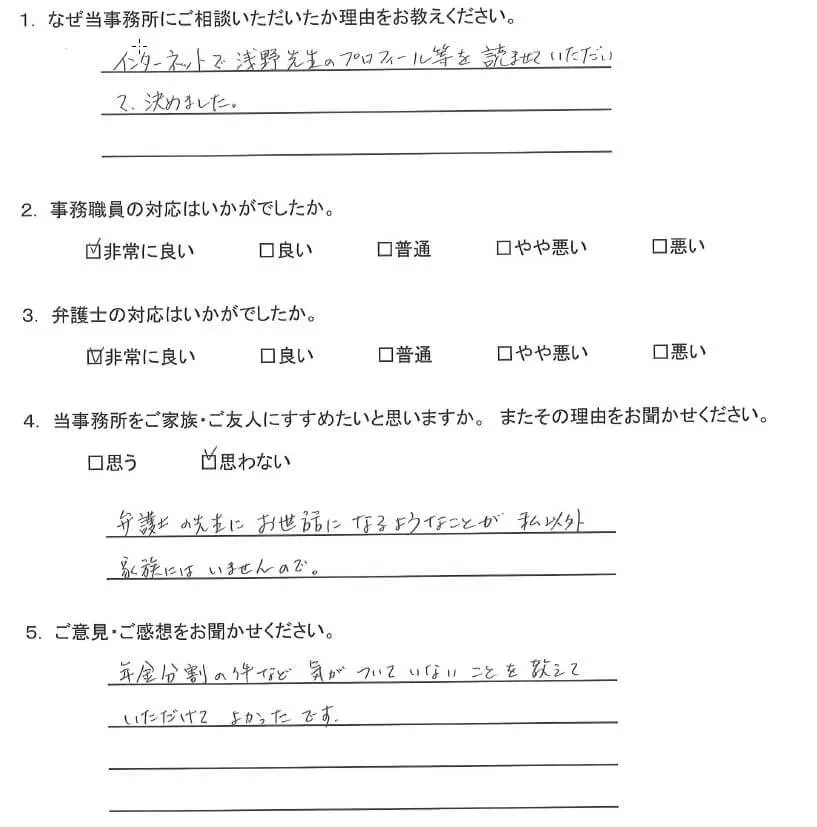 1. なぜ当事務所にご相談いただいたか理由をお教えください。
インターネットで浅野先生のプロフィール等を読ませていただい
て、決めました。
2. 事務職員の対応はいかがでしたか。
☑非常に良い □良い □普通 □やや悪い □悪い
3. 弁護士の対応はいかがでしたか。
☑非常に良い □良い □普通 □やや悪い □悪い
4. 当事務所をご家族・ご友人にすすめたいと思いますか。 またその理由をお聞かせください。
□思う ☑思わない
弁護士の先生にお世話になるようなことが私以外
家族にはいませんので。
5. ご意見・ご感想をお聞かせください。
年金分割の件など気がついていないことを教えて
いただけてよかったです。